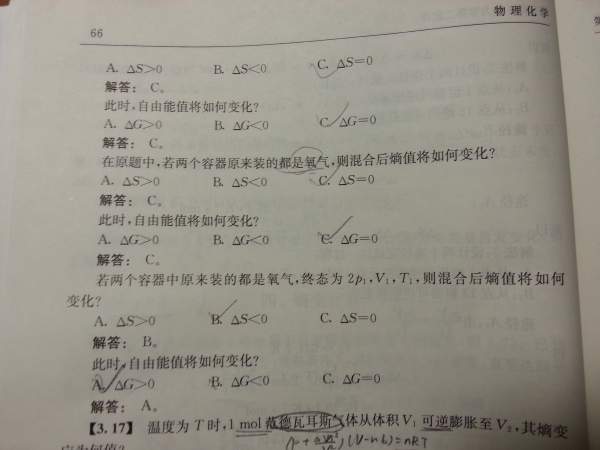 物理化学
66
A. ΔS>0 B. ΔS<0 C. ΔS=0
解答： C。
此时,自由能值将如何变化?
A. ΔG>0 B. ΔG<0 C. ΔG=0
解答： C。
在原题中,若两个容器原来装的都是氧气,则混合后熵值将如何变化?
A. ΔS>0 B. ΔS<0 C. ΔS=0
解答： C。
此时,自由能值将如何变化?
A. ΔG>0 B. ΔG<0 C. ΔG=0
解答： C。
若两个容器中原来装的都是氧气,终态为 2p₁,V₁,T₁,则混合后熵值将如何
变化?
A. ΔS>0 B. ΔS<0 C. ΔS=0
解答： B。
此时,自由能值将如何变化?
A. ΔG>0 B. ΔG<0 C. ΔG=0
解答： A。
【3.17】 温度为 T 时,1 mol 范德瓦耳斯气体从体积 V₁ 可逆膨胀至 V₂,其熵变
(V-nb)=nRT
应为何值?